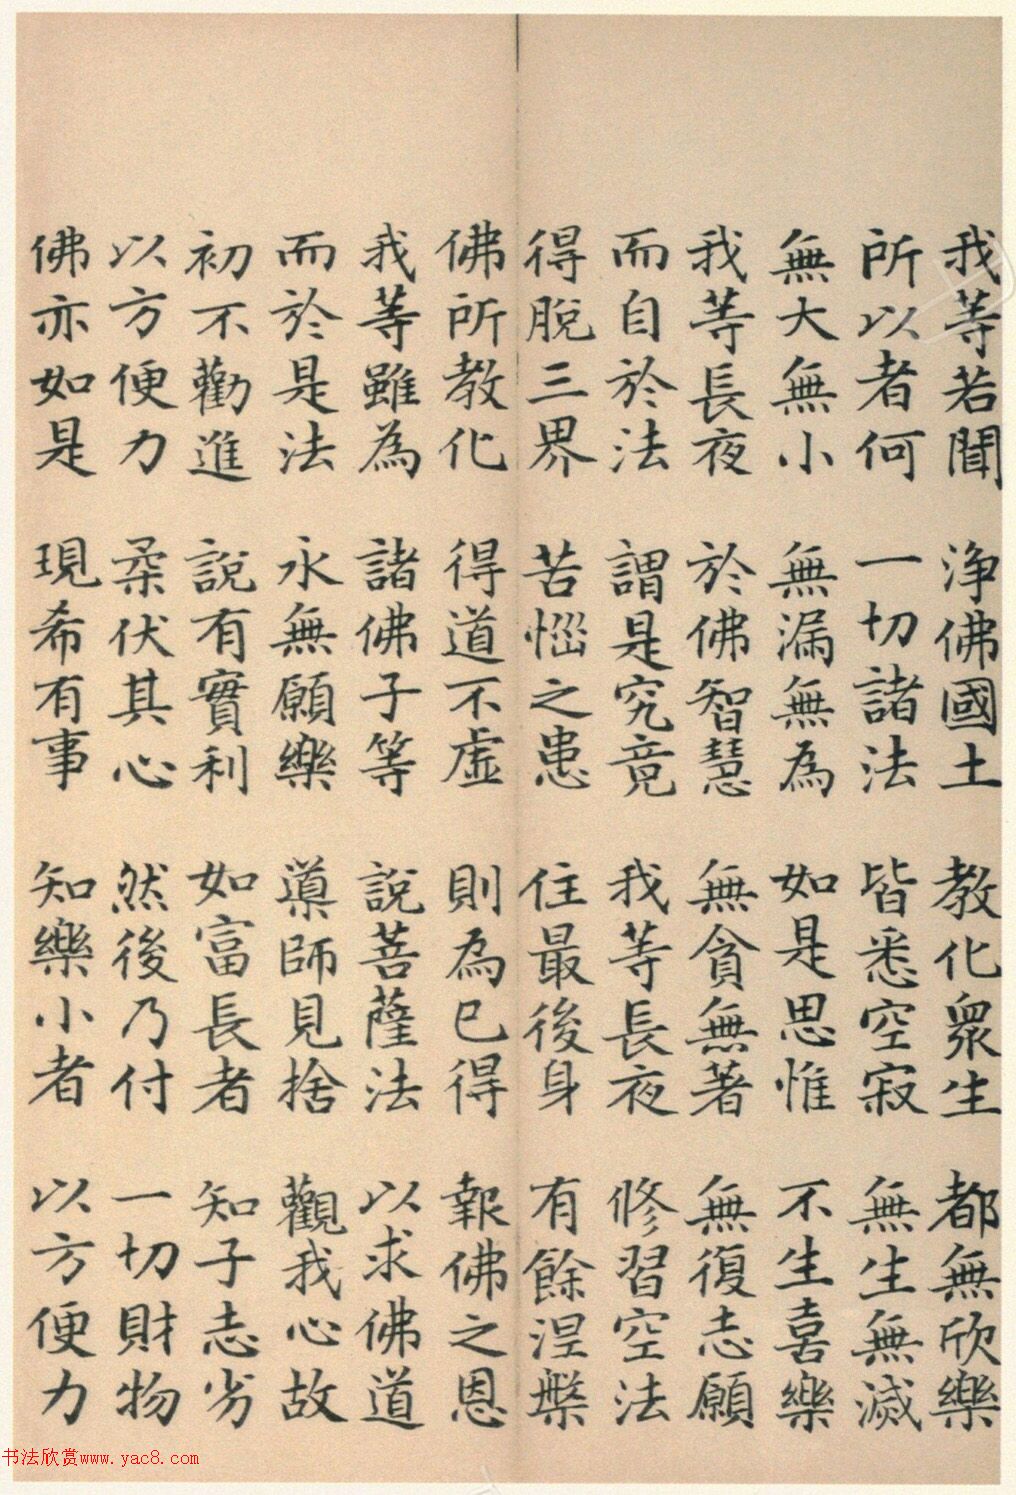 我等若聞 淨佛國土 教化眾生 都無欣樂
所以者何 一切諸法 皆悉空寂 無生無滅
無大無小 無漏無為 如是思惟 不生喜樂
我等長夜 於佛智慧 無貪無著 無復志願
而自於法 謂是究竟 我等長夜 修習空法
得脫三界 苦惱之患 住最後身 有餘涅槃
佛所教化 得道不虛 則為已得 報佛之恩
我等雖為 諸佛子等 說菩薩法 以求佛道
而於是法 永無願樂 導師見捨 觀我心故
初不勸進 說有實利 如富長者 知子志劣
以方便力 柔伏其心 然後乃付 一切財物
佛亦如是 現希有事 知樂小者 以方便力
书法欣赏www.yac8.com